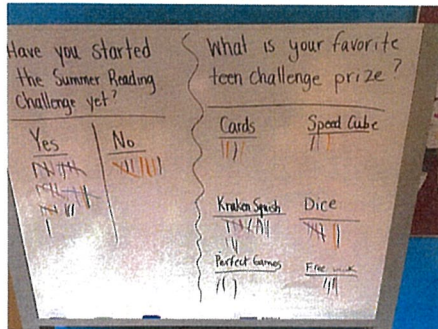 Have you started
the Summer Reading
Challenge yet?
Yes
No
What is your favorite
teen challenge prize?
Cards
Speed Cube
Kraken Squish
Dice
Perfect Games
Free